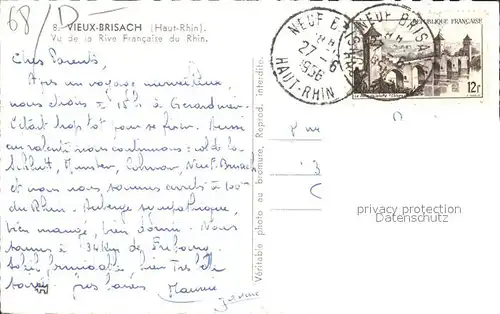 68/D
8. VIEUX-BRISACH (Haut-Rhin).
Vu de la Rive Française du Rhin.
Chers Parents,
Après un voyage merveilleux
nous étions à 15h à Gerardmer.
C'était trop tôt pour se fixer. Aussi
au ralenti nous continuons: col de la
Schlucht, Munster, Colmar, Neuf-Brisach
et nous nous sommes arrêtés à
du Rhin. Auberge sympathique,
bien mangé, bien dormi. Nous
sommes à 34km de Fribourg.
Soleil formidable, bien
bons baisers Maurice
Véritable photo au bromure, Reprod. interdite.
NEUF BRISACH
27-6
1956
HAUT-RHIN
NEUF BRISA
REPUBLIQUE FRANÇAISE
12F
privacy protection
Datenschutz